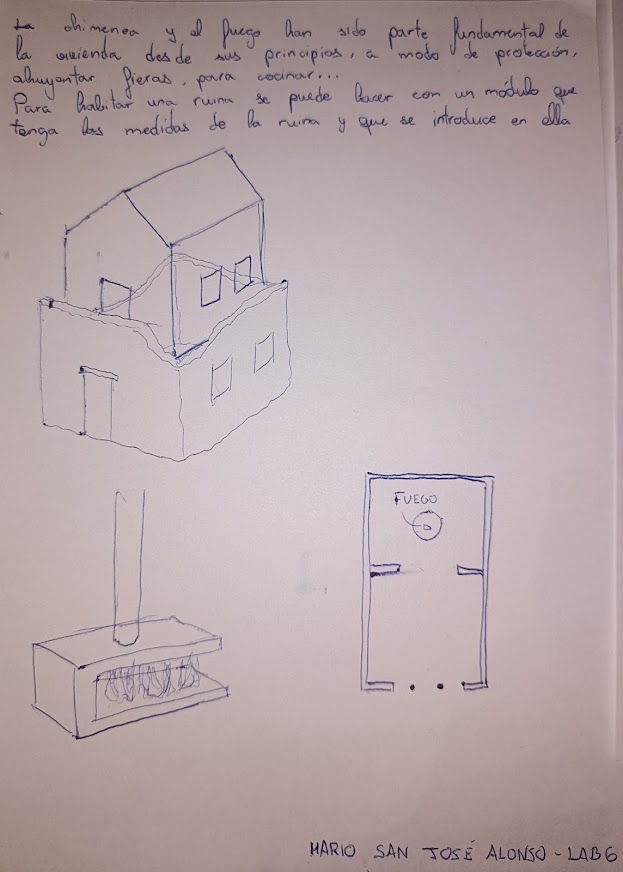 La chimenea y el fuego han sido parte fundamental de
la vivienda desde sus principios, a modo de protección,
ahuyentar fieras, para cocinar...
Para habitar una ruina se puede hacer con un módulo que
tenga las medidas de la ruina y que se introduce en ella
FUEGO
MARIO SAN JOSÉ ALONSO - LAB6